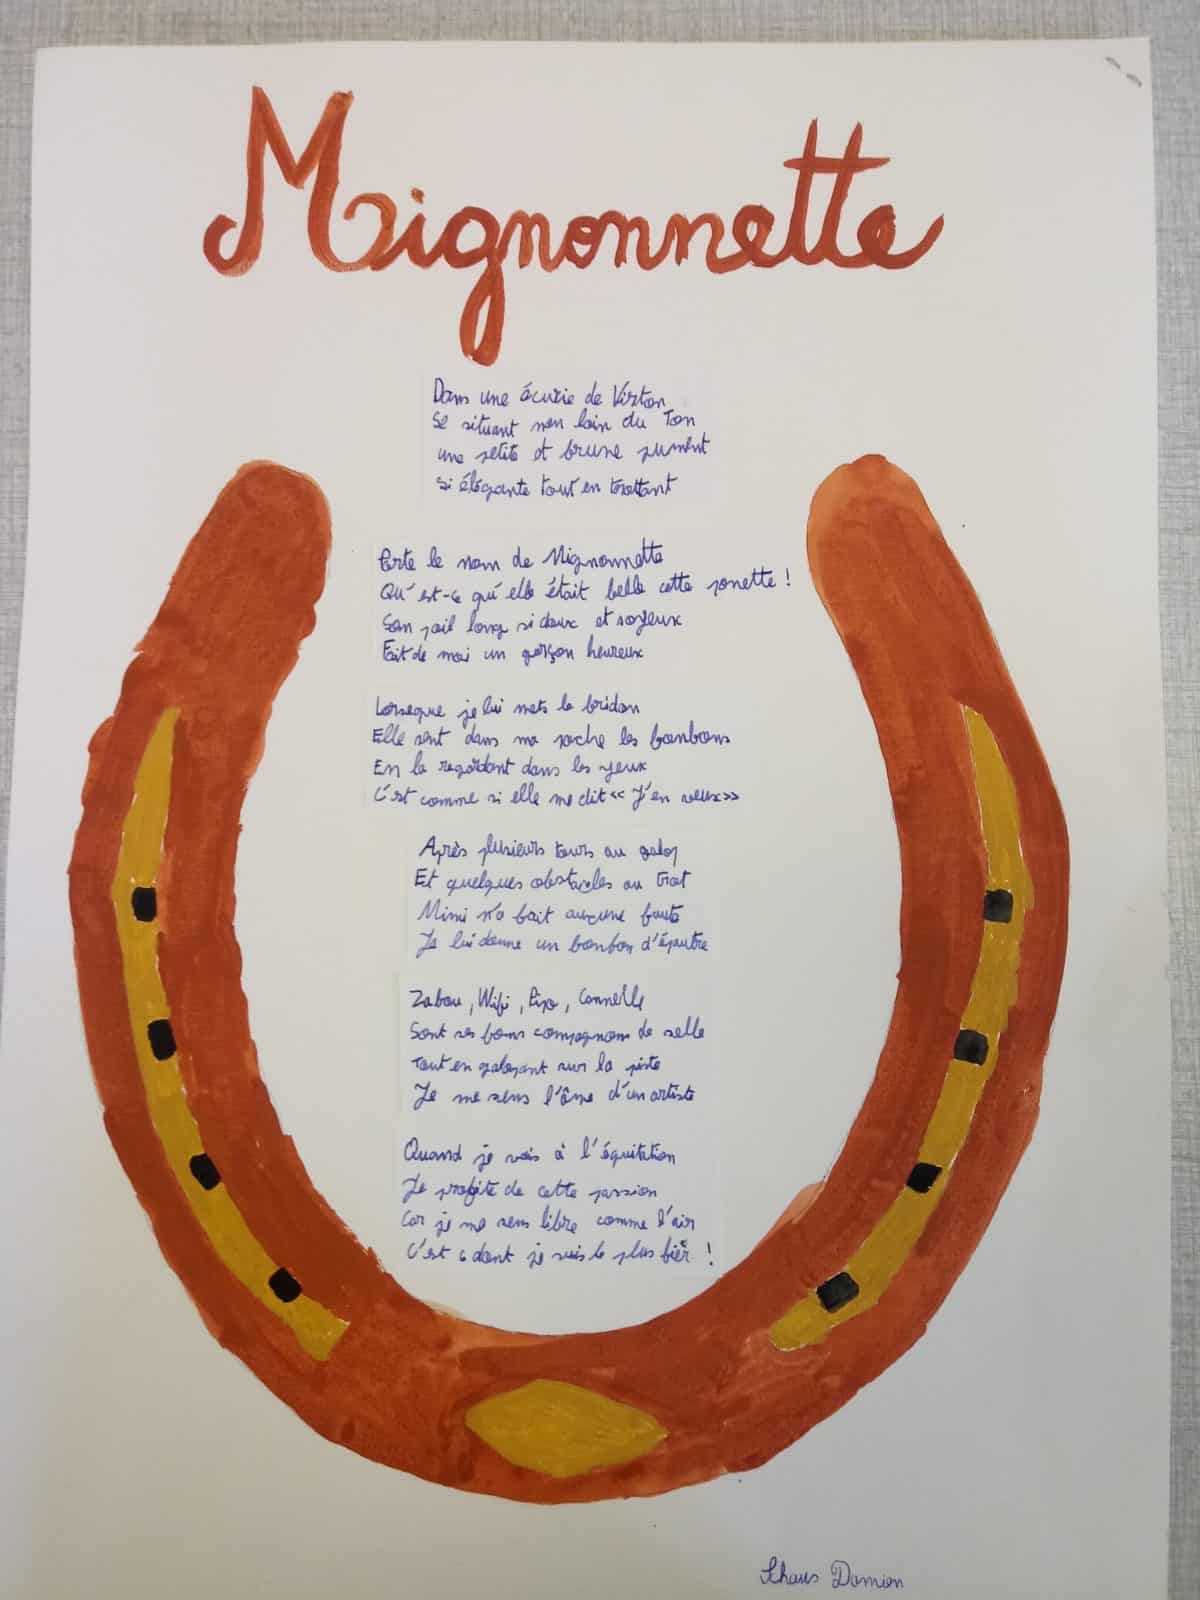 Mignonnette
Dans une écurie de Virton
Se situant non loin du Ton
une petite et brune jument
si élégante tout en trottant
Porte le nom de Mignonnette
Qu'est-ce qu'elle était belle cette ponette !
Son poil long si doux et soyeux
Fait de moi un garçon heureux
Lorseque je lui mets le bridon
Elle sent dans ma poche les bonbons
En la regardant dans les yeux
C'est comme si elle me dit « J'en veux »
Après plusieurs tours au galop
Et quelques obstacles au trot
Mimi n'a fait aucune faute
Je lui donne un bonbon d'épautre
Zabou, Wifi, Pixo, Cannelle
Sont ses bons compagnons de selle
Tout en galopant sur la piste
Je me sens l'âme d'un artiste
Quand je vais à l'équitation
Je profite de cette passion
Car je me sens libre comme l'air
C'est ce dont je suis le plus fier !
Schaus Damien